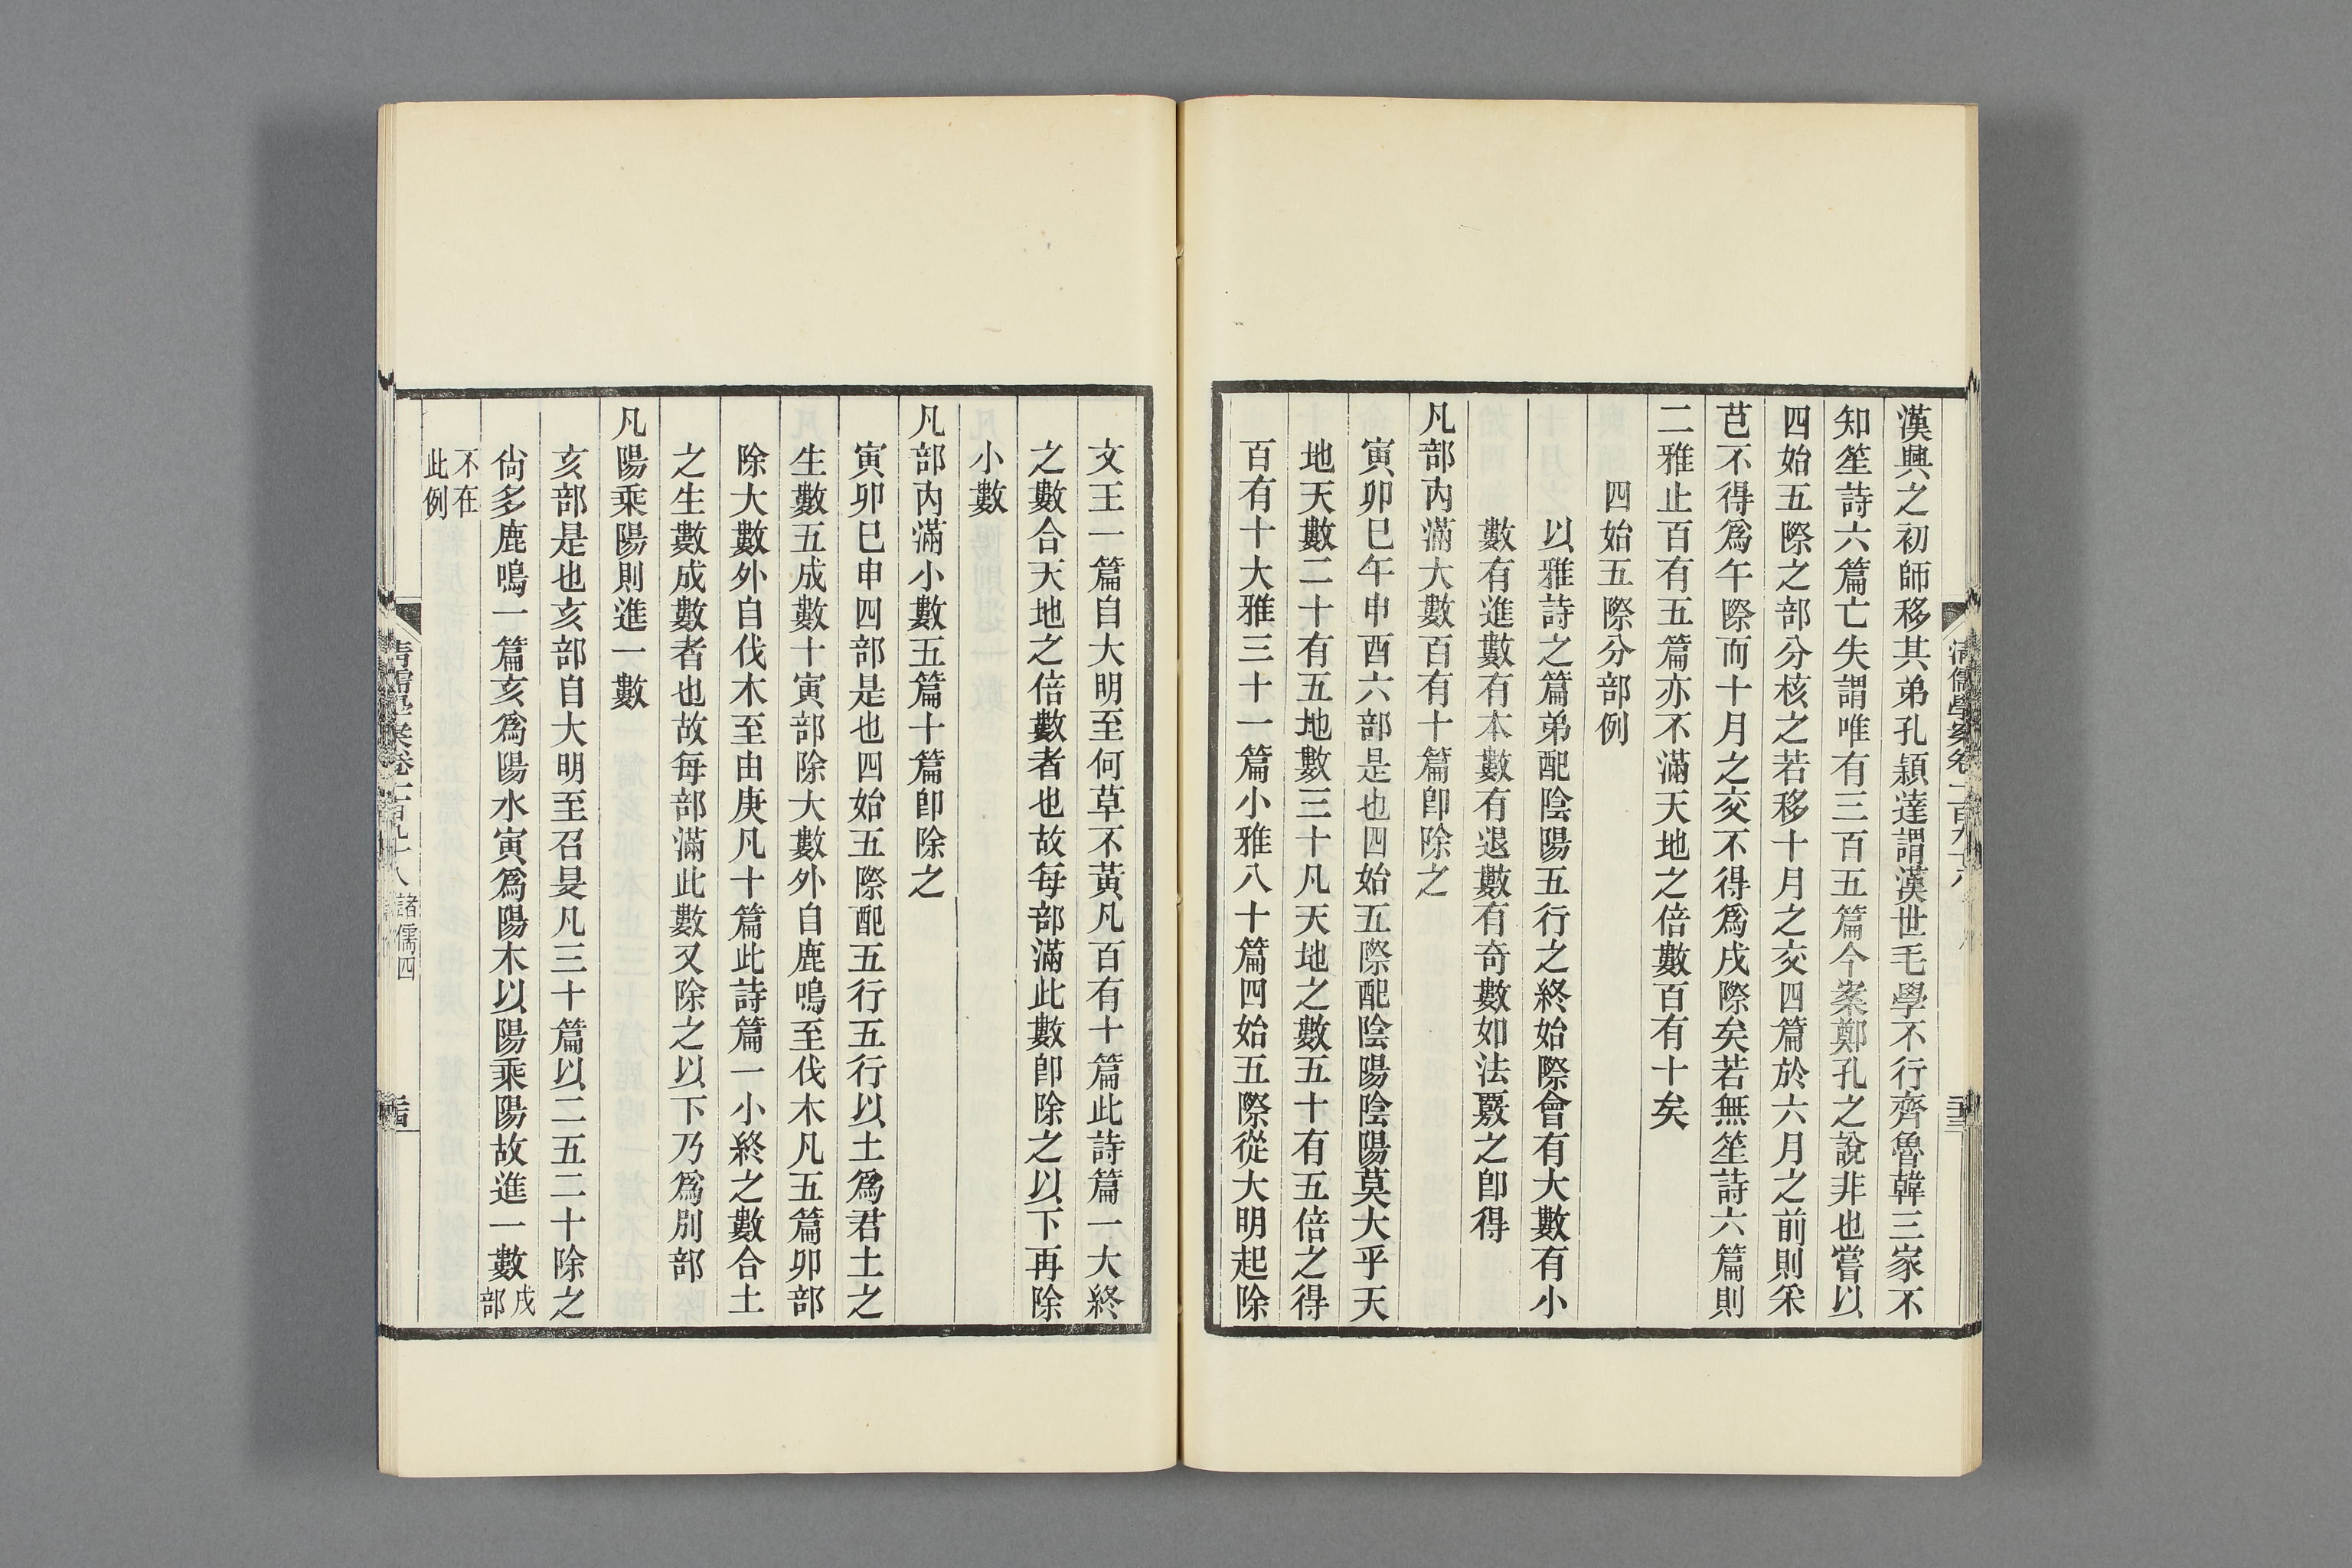 漢興之初師移其弟孔穎達謂漢世毛學不行齊魯韓三家不
知笙詩六篇亡失謂唯有三百五篇今案鄭孔之說非也嘗以
四始五際之部分核之若移十月之交四篇於六月之前則采
芑不得爲午際而十月之交不得爲戌際矣若無笙詩六篇則
二雅止百有五篇亦不滿天地之倍數百有十矣
四始五際分部例
以雅詩之篇弟配陰陽五行之終始際會有大數有小
數有進數有本數有退數有奇數如法覈之卽得
凡部內滿大數百有十篇卽除之
寅卯巳午申酉六部是也四始五際配陰陽陰陽莫大乎天
地天數二十有五地數三十凡天地之數五十有五倍之得
百有十大雅三十一篇小雅八十篇四始五際從大明起除
文王一篇自大明至何草不黃凡百有十篇此詩篇一大終
之數合天地之倍數者也故每部滿此數卽除之以下再除
小數
凡部內滿小數五篇十篇卽除之
寅卯巳申四部是也四始五際配五行五行以土爲君土之
生數五成數十寅部除大數外自鹿鳴至伐木凡五篇卯部
除大數外自伐木至由庚凡十篇此詩篇一小終之數合土
之生數成數者也故每部滿此數又除之以下乃爲別部
凡陽乘陽則進一數
亥部是也亥部自大明至召旻凡三十篇以二五二十除之
尙多鹿鳴一篇亥爲陽水寅爲陽木以陽乘陽故進一數戌部
不在此例
清儒學案卷一百九十八 諸儒四